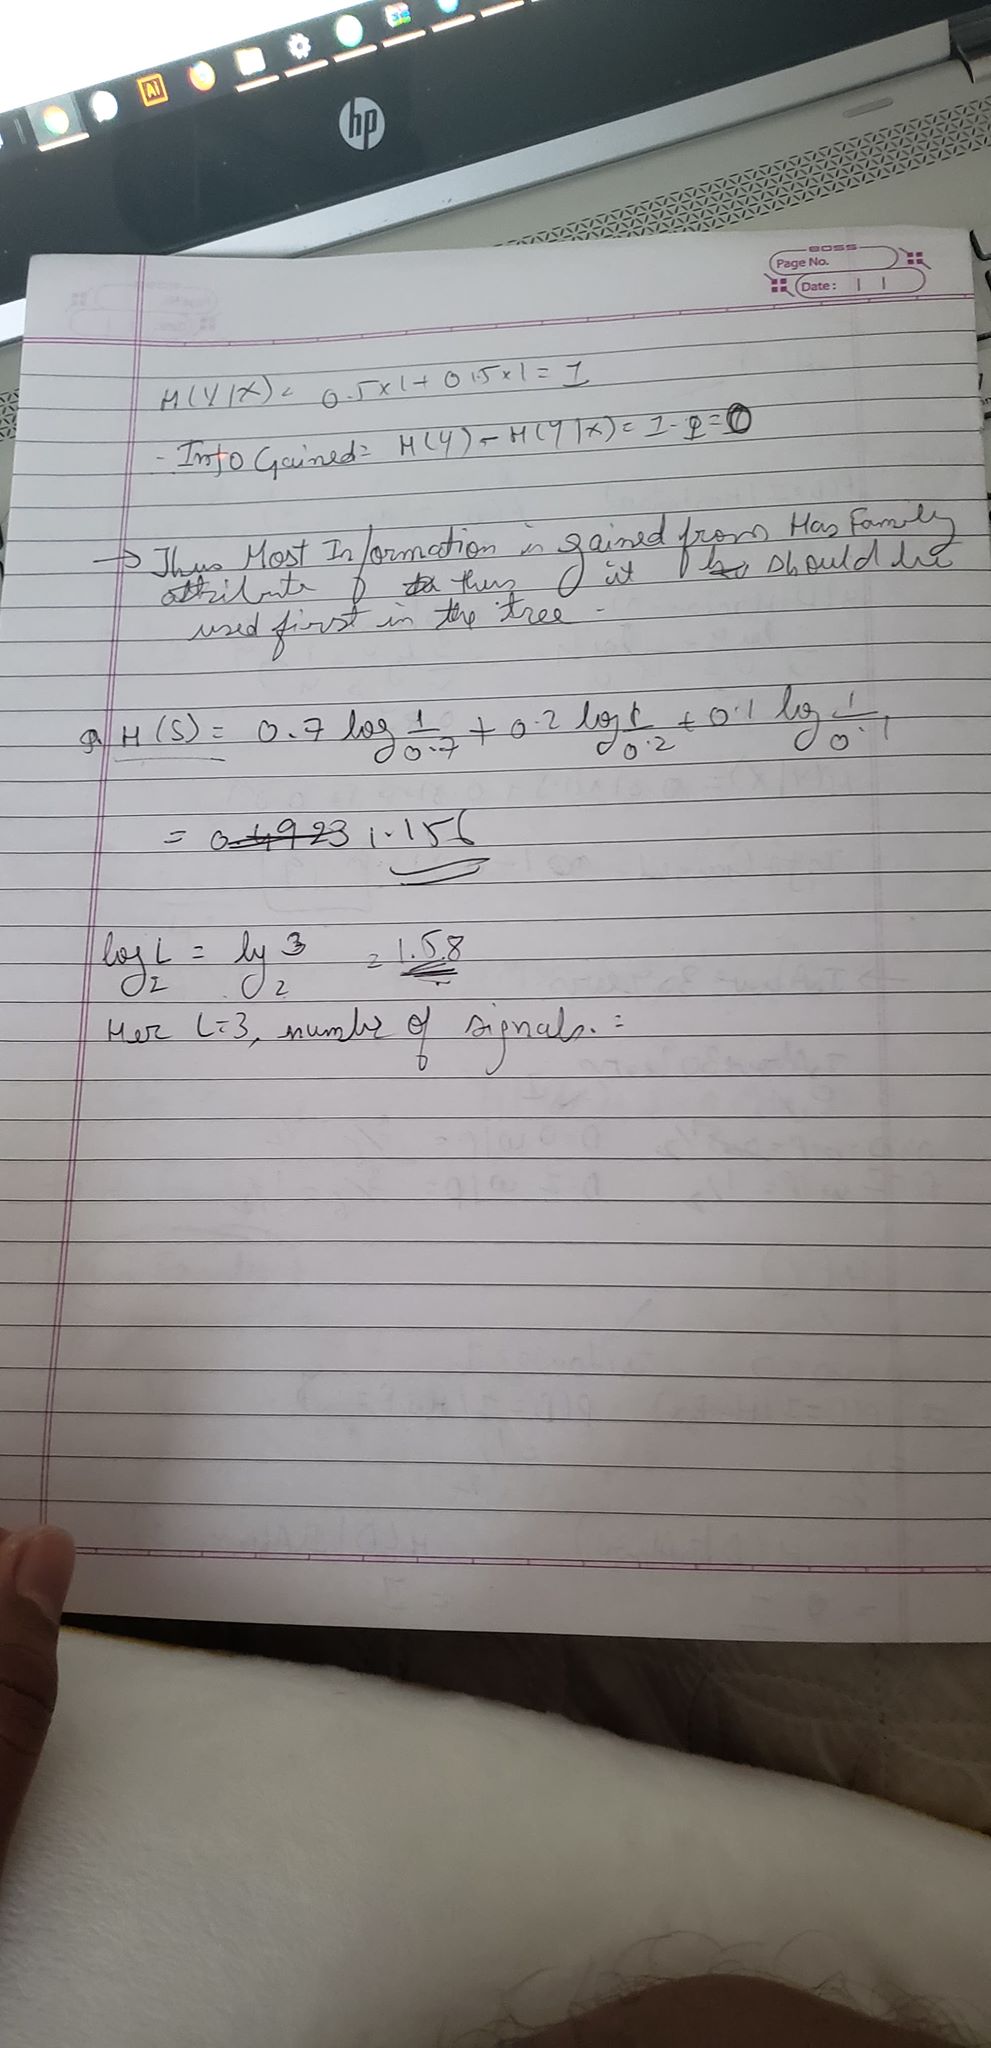 Ai
hp
BOSS
Page No.
Date:
H(Y|X) = 0.5x1+ 0.5x1 = 1
- Info Gained = H(Y) - H(Y|X) = 1-1=0
→ Thus Most Information is gained from Has Family
attribute thus it should be
used first in the tree -
H(S) = 0.7 log 1/0.7 + 0.2 log 1/0.2 + 0.1 log 1/0.1
= 0.4923 1.156
log₂ L = log₂ 3 = 1.58
Her L=3, number of signals. =